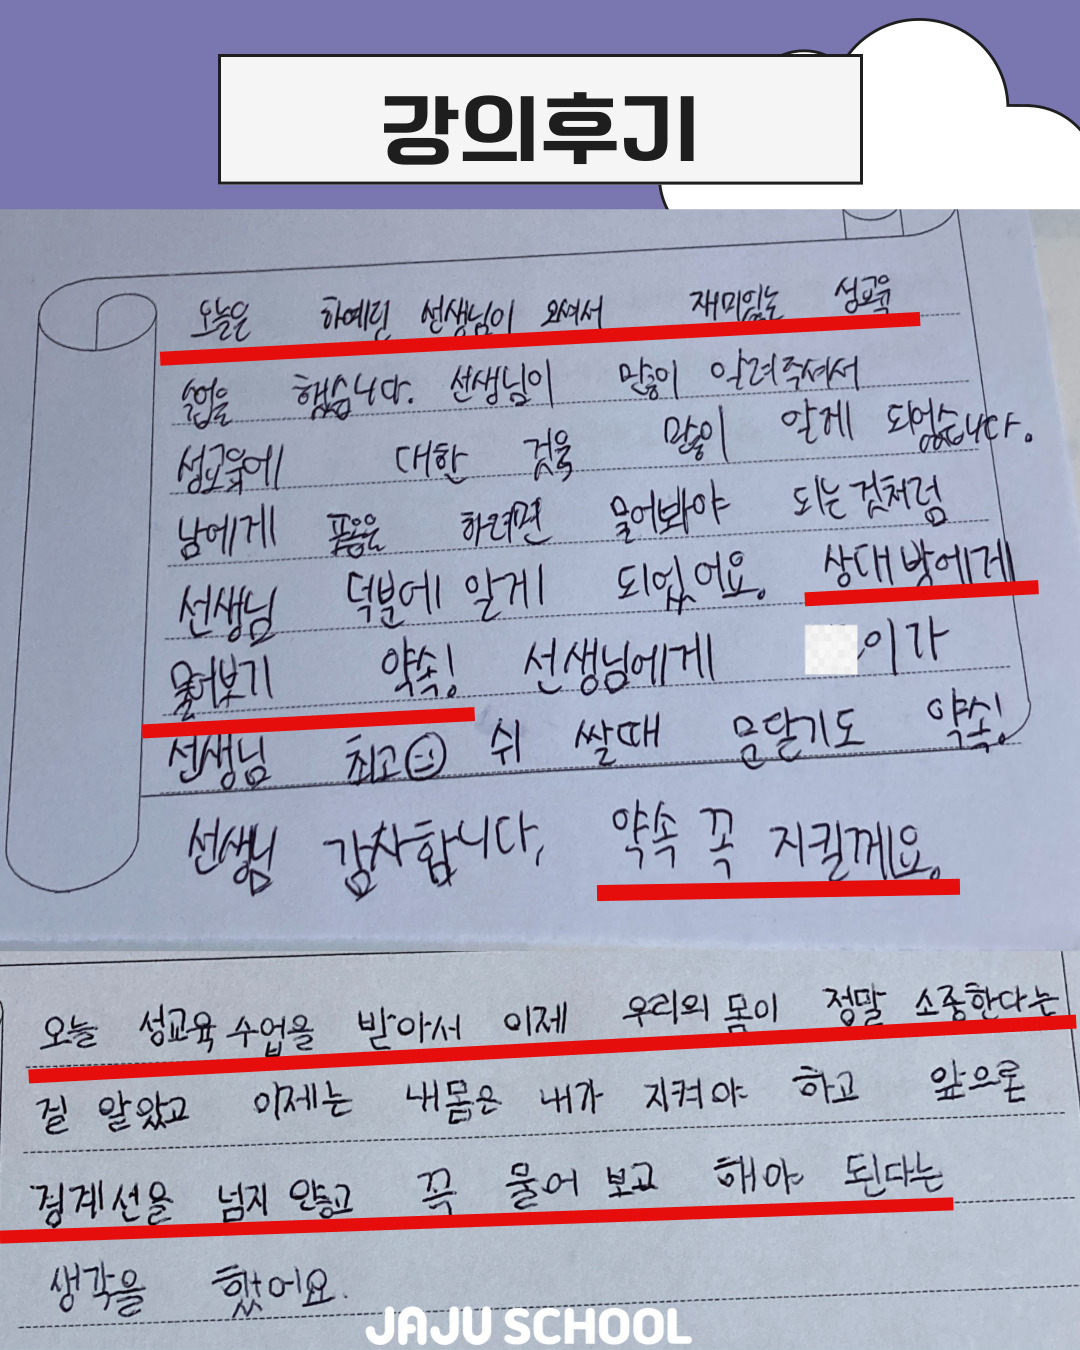 강의후기
오늘은 하예린 선생님이 오셔서 재미있는 성교육
수업을 했습니다. 선생님이 많이 알려주셔서
성교육에 대한 것을 많이 알게 되었습니다.
남에게 포옹을 하려면 물어봐야 되는것처럼
선생님 덕분에 알게 되었어요. 상대방에게
물어보기 약속! 선생님에게 이가
선생님 최고 쉬 쌀때 문닫기도 약속!
선생님 감사합니다, 약속 꼭 지킬께요.
오늘 성교육 수업을 받아서 이제 우리의 몸이 정말 소중한다는
걸 알았고 이제는 내몸은 내가 지켜야 하고 앞으론
경계선을 넘지 않고 꼭 물어 보고 해야 된다는
생각을 했어요.
JAJU SCHOOL